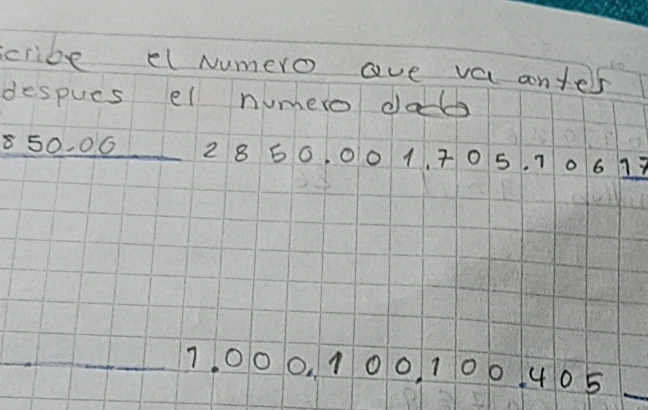 cribe el Numero Que va antes
despues el numero dado
850.00 2850.001.705.106 17
1.000.100.100.405